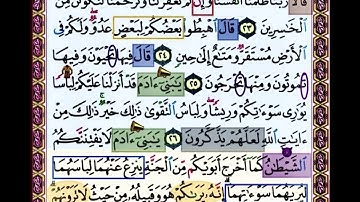 قالا ربنا ظلمنا أنفسنا وإن لم تغفر لنا وترحمنا لنكونن من
ٱلخٰسرين ٢٣ قال ٱهبطوا۟ بعضكم لبعض عدو ولكم فى
ٱلأرض مستقر ومتٰع إلىٰ حين ٢٤ قال فيها تحيون وفيها
تموتون ومنها تخرجون ٢٥ يٰبنىٓ ءادم قد أنزلنا عليكم لباسا
يوٰرى سوءٰتكم وريشا ولباس ٱلتقوىٰ ذٰلك خير ذٰلك من
ءايٰت ٱلله لعلهم يذكرون ٢٦ يٰبنىٓ ءادم لا يفتننكم
ٱلشيطٰن كمآ أخرج أبويكم من ٱلجنة ينزع عنهما لباسهما
ليريهما سوءٰتهمآ إنه يرىٰكم هو وقبيله من حيث لا ترونهم